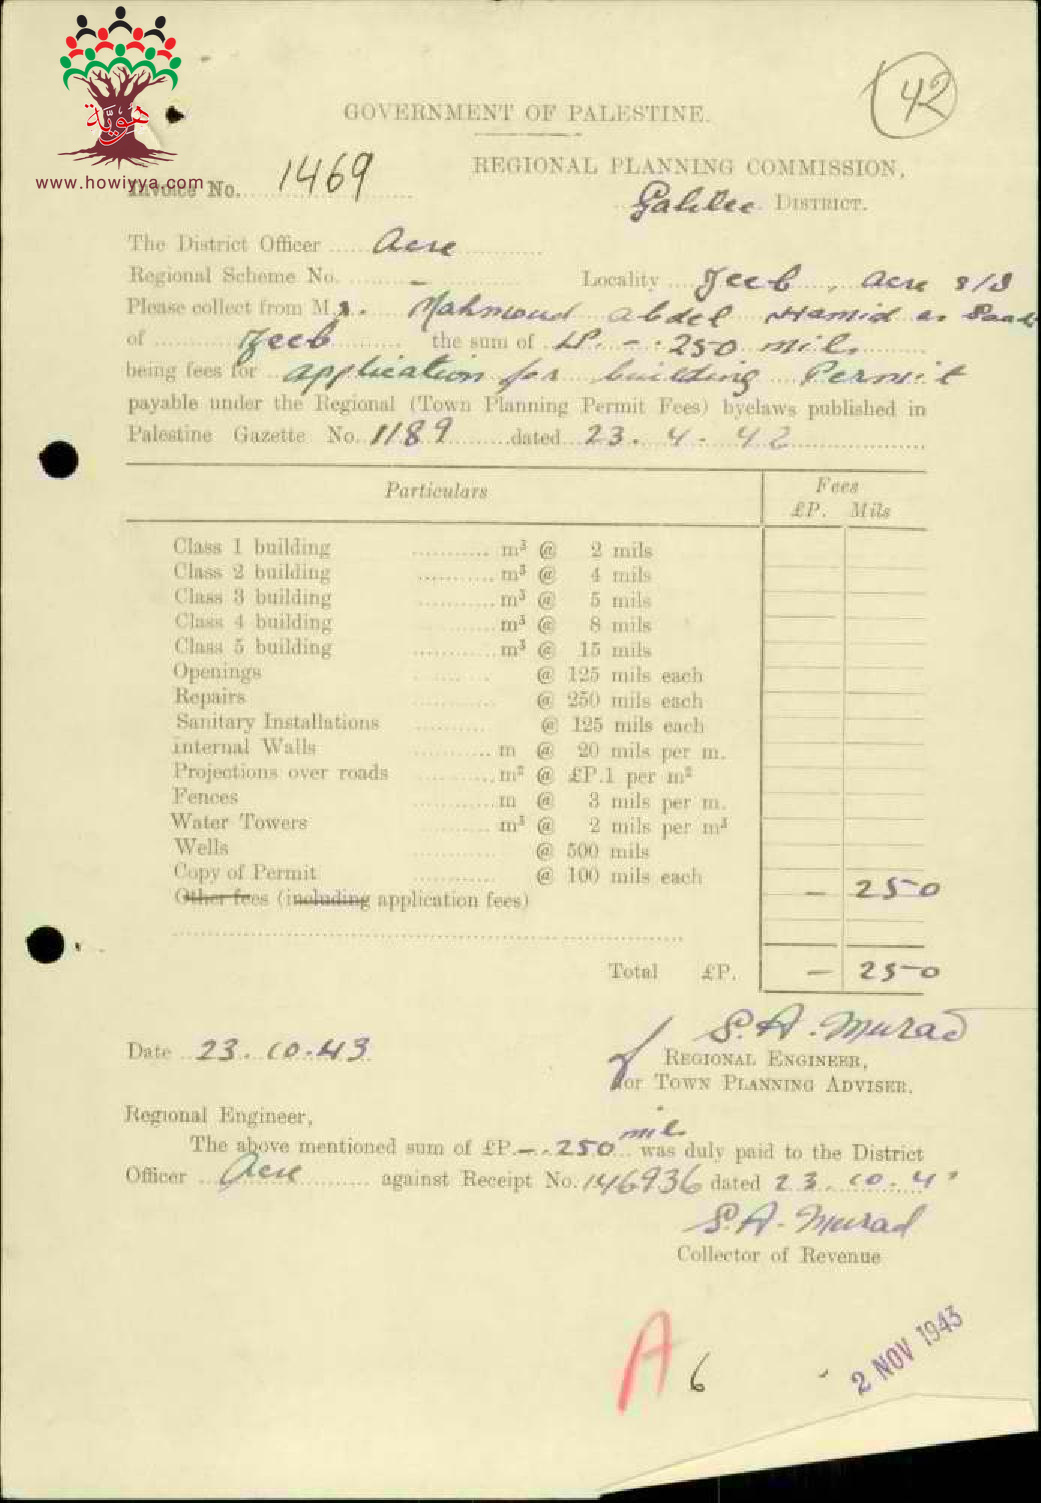 هويّة
www.howiyya.com
42
GOVERNMENT OF PALESTINE.
REGIONAL PLANNING COMMISSION,
Invoice No. 1469
Galilee DISTRICT.
The District Officer Acre
Regional Scheme No. – Locality Zeeb, Acre S/D
Please collect from Mr. Mahmoud Abdel Hamid as Saad
of Zeeb the sum of LP. – . 250 mils
being fees for application for building Permit
payable under the Regional (Town Planning Permit Fees) byelaws published in
Palestine Gazette No. 1189 dated 23. 4. 42
Particulars Fees
£P. Mils
Class 1 building m³ @ 2 mils
Class 2 building m³ @ 4 mils
Class 3 building m³ @ 5 mils
Class 4 building m³ @ 8 mils
Class 5 building m³ @ 15 mils
Openings @ 125 mils each
Repairs @ 250 mils each
Sanitary Installations @ 125 mils each
Internal Walls m @ 20 mils per m.
Projections over roads m² @ £P.1 per m²
Fences m @ 3 mils per m.
Water Towers m³ @ 2 mils per m³
Wells @ 500 mils
Copy of Permit @ 100 mils each
Other fees (including application fees) – 250
Total £P. – 250
S.A. Murad
Date 23. 10. 43
REGIONAL ENGINEER,
for TOWN PLANNING ADVISER.
Regional Engineer,
The above mentioned sum of £P. – . 250 mils was duly paid to the District
Officer Acre against Receipt No. 146936 dated 23. 10. 4
S.A. Murad
Collector of Revenue
A 6
2 NOV 1943